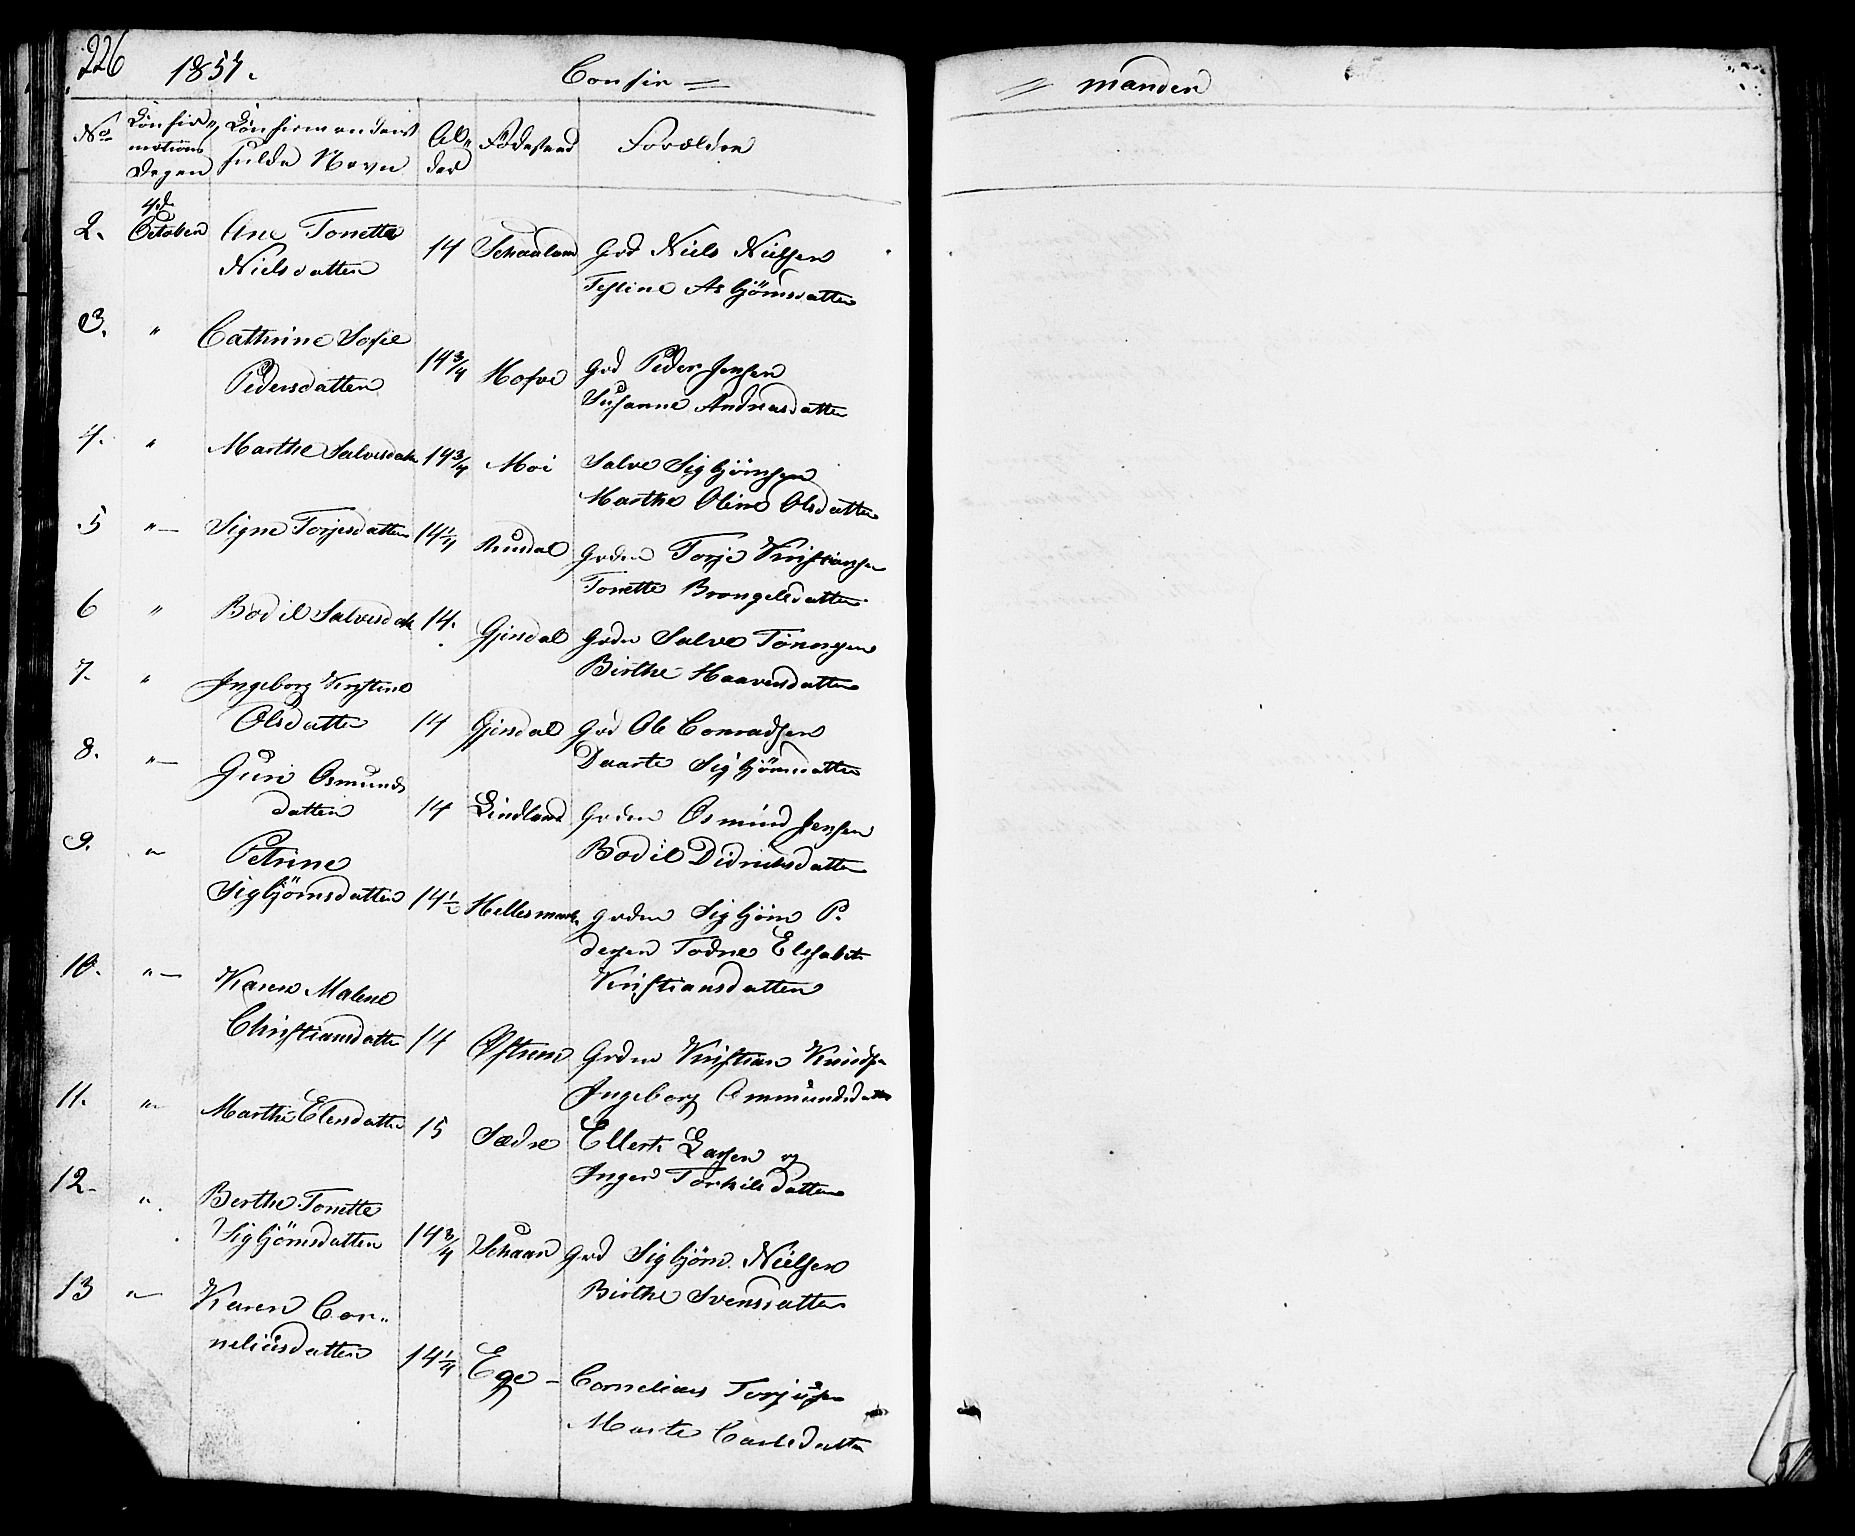 226
1857.
Confir =
= mander
No
Confir=
mations
Dagen
Confirmandens
fulde Navn
Al=
der
Fødestæd
Forældre
2.
4d
October
Ane Tonette
Nielsdatter
14
Schaaland
Grd Niels Nielsen
Asbjörnsdatter
3.
"
Cathrine Sofie
Pedersdatter
14 3/4
Grd Peder Jensen
Susanne Andreasdatter
4.
"
Marthe Salvesdatr
14 3/4
Moi
Salve Sigbjörnsen
Marthe Oline Olsdatter
5
"
Signe Torjesdatter
14 1/4
Grdm Torje Kristiansen
Tonette Brongelsdatter
6
"
Bodil Salvesdatr
14.
Gjesdal
Grdm Salve Tönnesen
Birthe Haaversdatter
7.
"
Ingeborg Kirstine
Olsdatter
14
Gjesdal
Grd Ole Conradsen
Daarte Sigbjörnsdatter
8.
"
Guri Osmunds
datter
14
Lindland
Grdm Osmund Jensen
Bodil Didriksdatter
9.
"
Petrine
Sigbjörnsdatter
14 1/2
Grdm Sigbjörn P.
dersen Todne Elisabet
Kristiansdatter
10.
"
Karen Malene
Christiansdatter
14
Østrem
Grdm Kristian Knudsen
Ingeborg Ommundsdatter
11.
"
Marthe Elersdatter
15
Sædre
Ellert Larsen og
Inger Torkilsdatter
12.
"
Berthe Tonette
Sigbjörnsdatter
14 3/4
Schaar
Grd Sigbjörn Nielsen
Birthe Svensdatter
13
"
Karen Cor=
neliusdatter
14 1/4
Ege
Cornelius Torjusen
Marte Carlsdatter